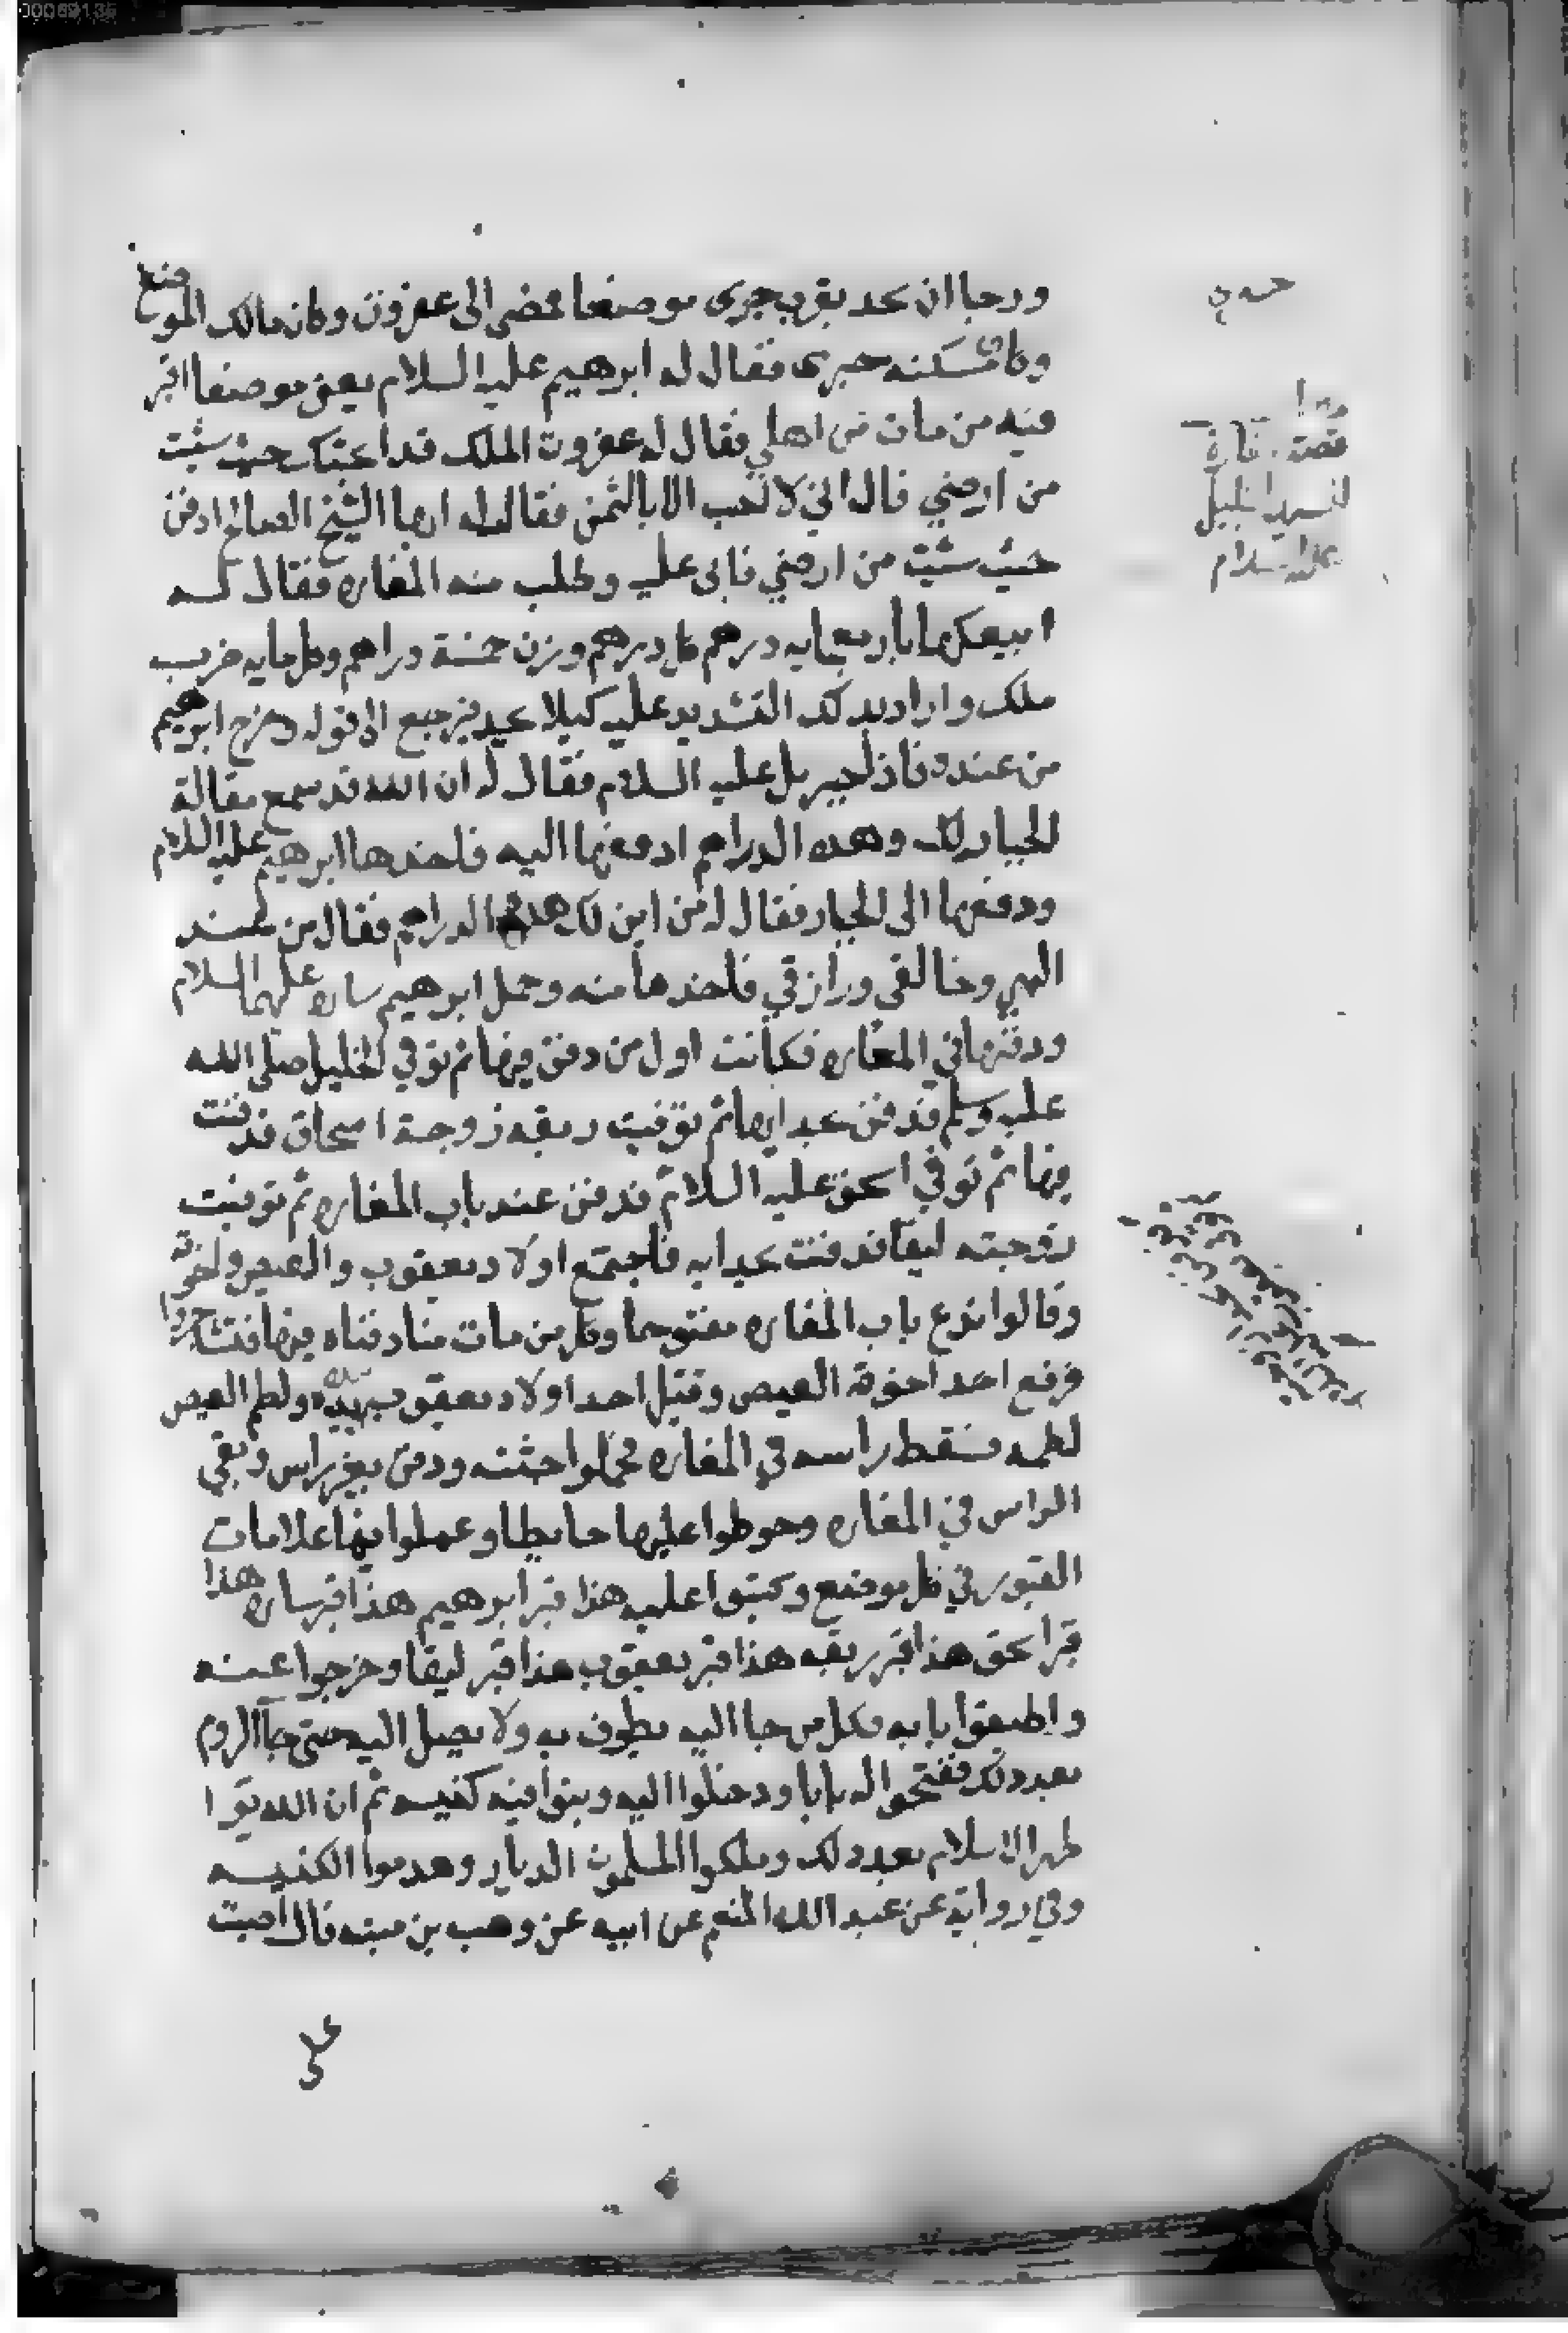 ورجا ان يجد بقرب حبرى موضعا فمضى الى عفرون وكان مالك الموضع
وكان مسكنه حبرى فقال له ابرهيم عليه السلام بعني موضعا اقبر
فيه من مات من اهلي فقال له عفرون الملك قد ابحتك حيث شيت
من ارضي قال اني لا احب الا بالثمن فقال له ايها الشيخ الصالح ادفن
حيث شيت من ارضي فابى عليه وطلب منه المغاره فقال له
ابيعكها باربعمايه درهم كل درهم وزن خمسة دراهم وكل مايه ضرب
ملك واراد بذلك التشديد عليه كيلا يجد فيرجع الى قوله وخرج ابرهيم
من عنده فاذا جبريل عليه السلام فقال له ان الله قد سمع مقالة
الجبار لك وهذه الدراهم ادفعها اليه فاخذها ابرهيم عليه السلام
ودفعها الى الجبار فقال له من اين لك هذه الدراهم فقال من عند
الهي وخالقي ورازقي فاخذها منه وحمل ابرهيم ساره عليهما السلام
ودفنها في المغاره فكانت اول من دفن فيها ثم توفي الخليل صلى الله
عليه وسلم فدفن بحدايها ثم توفيت ربقه زوجة اسحاق فدفنت
فيها ثم توفي اسحق عليه السلام فدفن عند باب المغاره ثم توفيت
زوجته ليقا فدفنت بحدايه فاجتمع اولاد يعقوب والعيص واخوته
وقالوا ندع باب المغاره مفتوحا وكل من مات منا دفناه فيها فتشاجروا
فرفع احد اخوة العيص وقيل احد اولاد يعقوب يده ولطم العيص
لطمه فسقط راسه في المغاره فحملوا جثته ودفن بغير راس وبقي
الراس في المغاره وحوطوا عليها حايطا وعملوا فيها علامات
القبور في كل موضع وكتبوا عليه هذا قبر ابرهيم هذا قبر ساره هذا
قبر اسحق هذا قبر ربقه هذا قبر يعقوب هذا قبر ليقا وخرجوا عنه
واطبقوا بابه فكل من جا اليه يطوف به ولا يصل اليه حتى جا الروم
بعد ذلك ففتحوا له بابا ودخلوا اليه وبنوا فيه كنيسه ثم ان الله
اظهر الاسلام بعد ذلك وملكوا المسلمون الديار وهدموا الكنيسه
وفي رواية عن عبد الله المنعم عن ابيه عن وهب بن منبه قال اصبت
على
قصة مغارة
السيد الخليل
عليه السلام